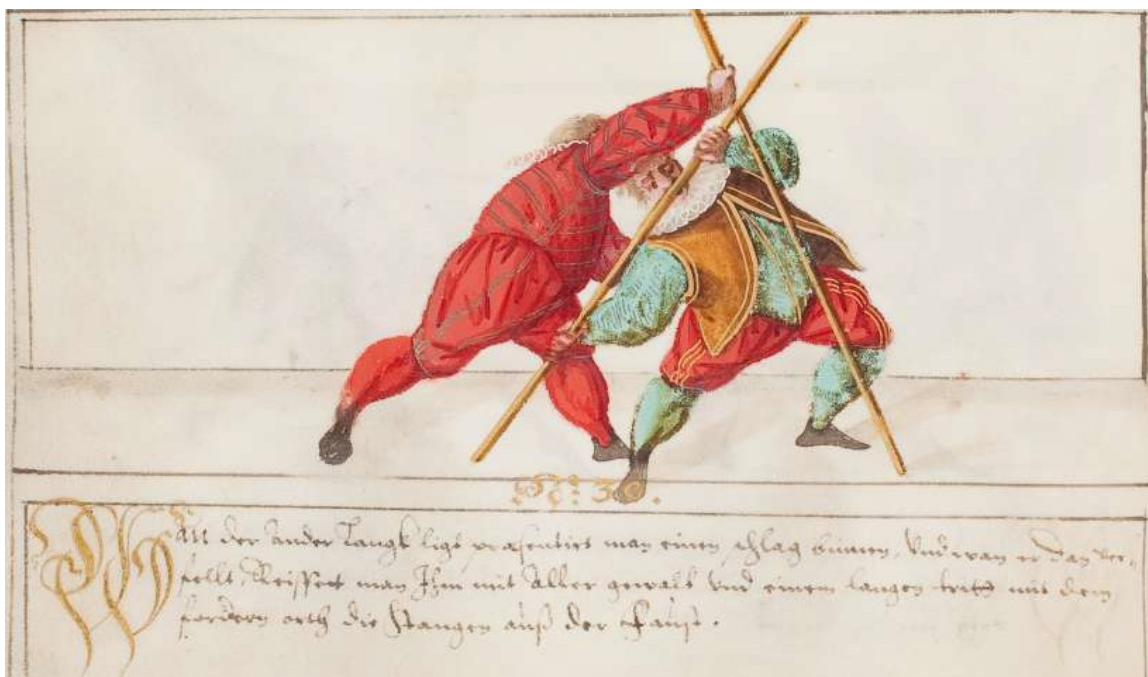 No: 30.
Wan der ander Langk ligt præsentiert man einen schlag binnen, Und wan er dan ver-
fellt, Reisset man Ihm mit aller gewalt und einem langen tritt mit dem
fordern orth die Stangen auß der Faust.